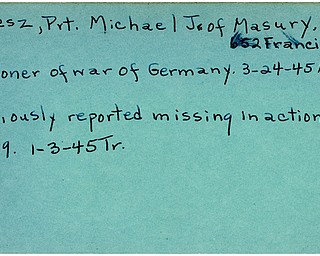 esz, Pvt. Michael J. of Masury,
652 Franci
oner of war of Germany. 3-24-45
iously reported missing in action
9. 1-3-45 Tr.